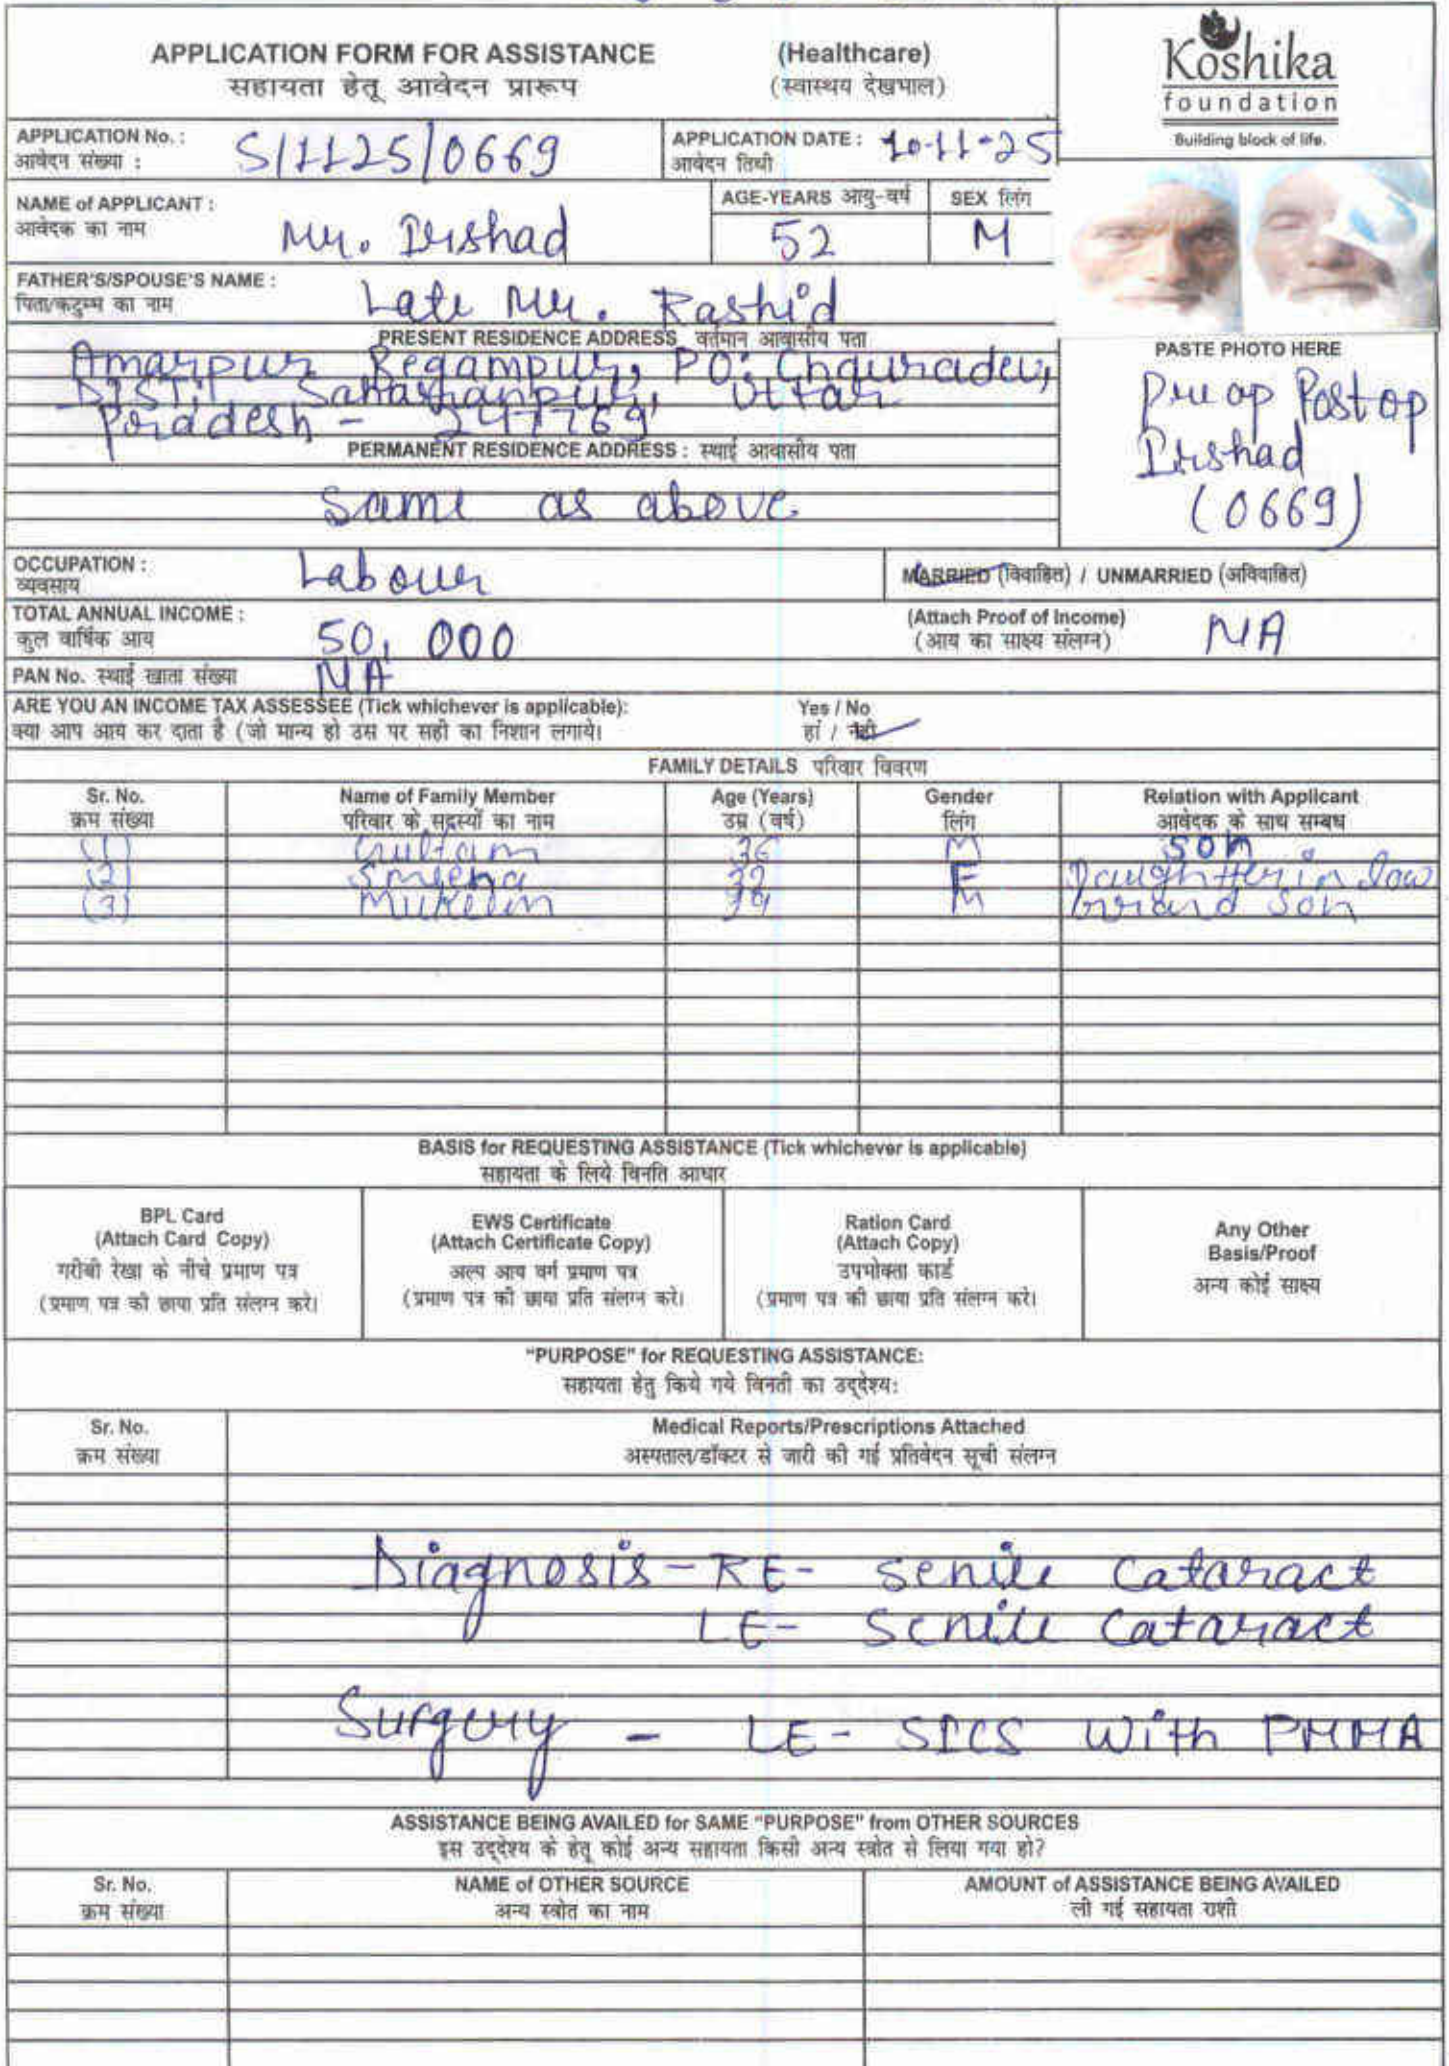 APPLICATION FORM FOR ASSISTANCE (Healthcare)
सहायता हेतू आवेदन प्रारूप (स्वास्थय देखभाल)
Koshika
foundation
Building block of life.
APPLICATION No. : S/1125/0669 APPLICATION DATE : 10-11-25
आवेदन संख्या : आवेदन तिथी
NAME of APPLICANT : Mr. Irshad AGE-YEARS आयु-वर्ष 52 SEX लिंग M
आवेदक का नाम
FATHER'S/SPOUSE'S NAME : Late Mr. Rashid
पिता/कटुम्म का नाम
PRESENT RESIDENCE ADDRESS वर्तमान आवासीय पता
Amarpur Begampur, PO: Chauradev,
DIST: Saharanpur, Uttar
Pradesh - 247769
PERMANENT RESIDENCE ADDRESS : स्थाई आवासीय पता
Same as above
PASTE PHOTO HERE
Pre op Post op
Irshad
(0669)
OCCUPATION : Labour MARRIED (विवाहित) / UNMARRIED (अविवाहित)
व्यवसाय
TOTAL ANNUAL INCOME : 50,000 (Attach Proof of Income) NA
कुल वार्षिक आय (आय का साक्ष्य संलग्न)
PAN No. स्थाई खाता संख्या NA
ARE YOU AN INCOME TAX ASSESSEE (Tick whichever is applicable): Yes / No
क्या आप आय कर दाता है (जो मान्य हो उस पर सही का निशान लगाये। हां / नही
FAMILY DETAILS परिवार विवरण
Sr. No. Name of Family Member Age (Years) Gender Relation with Applicant
क्रम संख्या परिवार के सदस्यों का नाम उम्र (वर्ष) लिंग आवेदक के साथ सम्बध
(1) Gulfam 36 M Son
(2) F Daughter in law
(3) M Grand son
BASIS for REQUESTING ASSISTANCE (Tick whichever is applicable)
सहायता के लिये विनति आधार
BPL Card
(Attach Card Copy)
गरीबी रेखा के नीचे प्रमाण पत्र
(प्रमाण पत्र की छाया प्रति संलग्न करे।
EWS Certificate
(Attach Certificate Copy)
अल्प आय वर्ग प्रमाण पत्र
(प्रमाण पत्र की छाया प्रति संलग्न करे।
Ration Card
(Attach Copy)
उपभोक्ता कार्ड
(प्रमाण पत्र की छाया प्रति संलग्न करे।
Any Other
Basis/Proof
अन्य कोई साक्ष्य
"PURPOSE" for REQUESTING ASSISTANCE:
सहायता हेतु किये गये विनती का उद्देश्य:
Sr. No. Medical Reports/Prescriptions Attached
क्रम संख्या अस्पताल/डॉक्टर से जारी की गई प्रतिवेदन सूची संलग्न
Diagnosis - RE - Senile Cataract
LE - Senile Cataract
Surgery - LE - SICS With PMMA
ASSISTANCE BEING AVAILED for SAME "PURPOSE" from OTHER SOURCES
इस उद्देश्य के हेतू कोई अन्य सहायता किसी अन्य स्त्रोत से लिया गया हो?
Sr. No. NAME of OTHER SOURCE AMOUNT of ASSISTANCE BEING AVAILED
क्रम संख्या अन्य स्त्रोत का नाम ली गई सहायता राशी